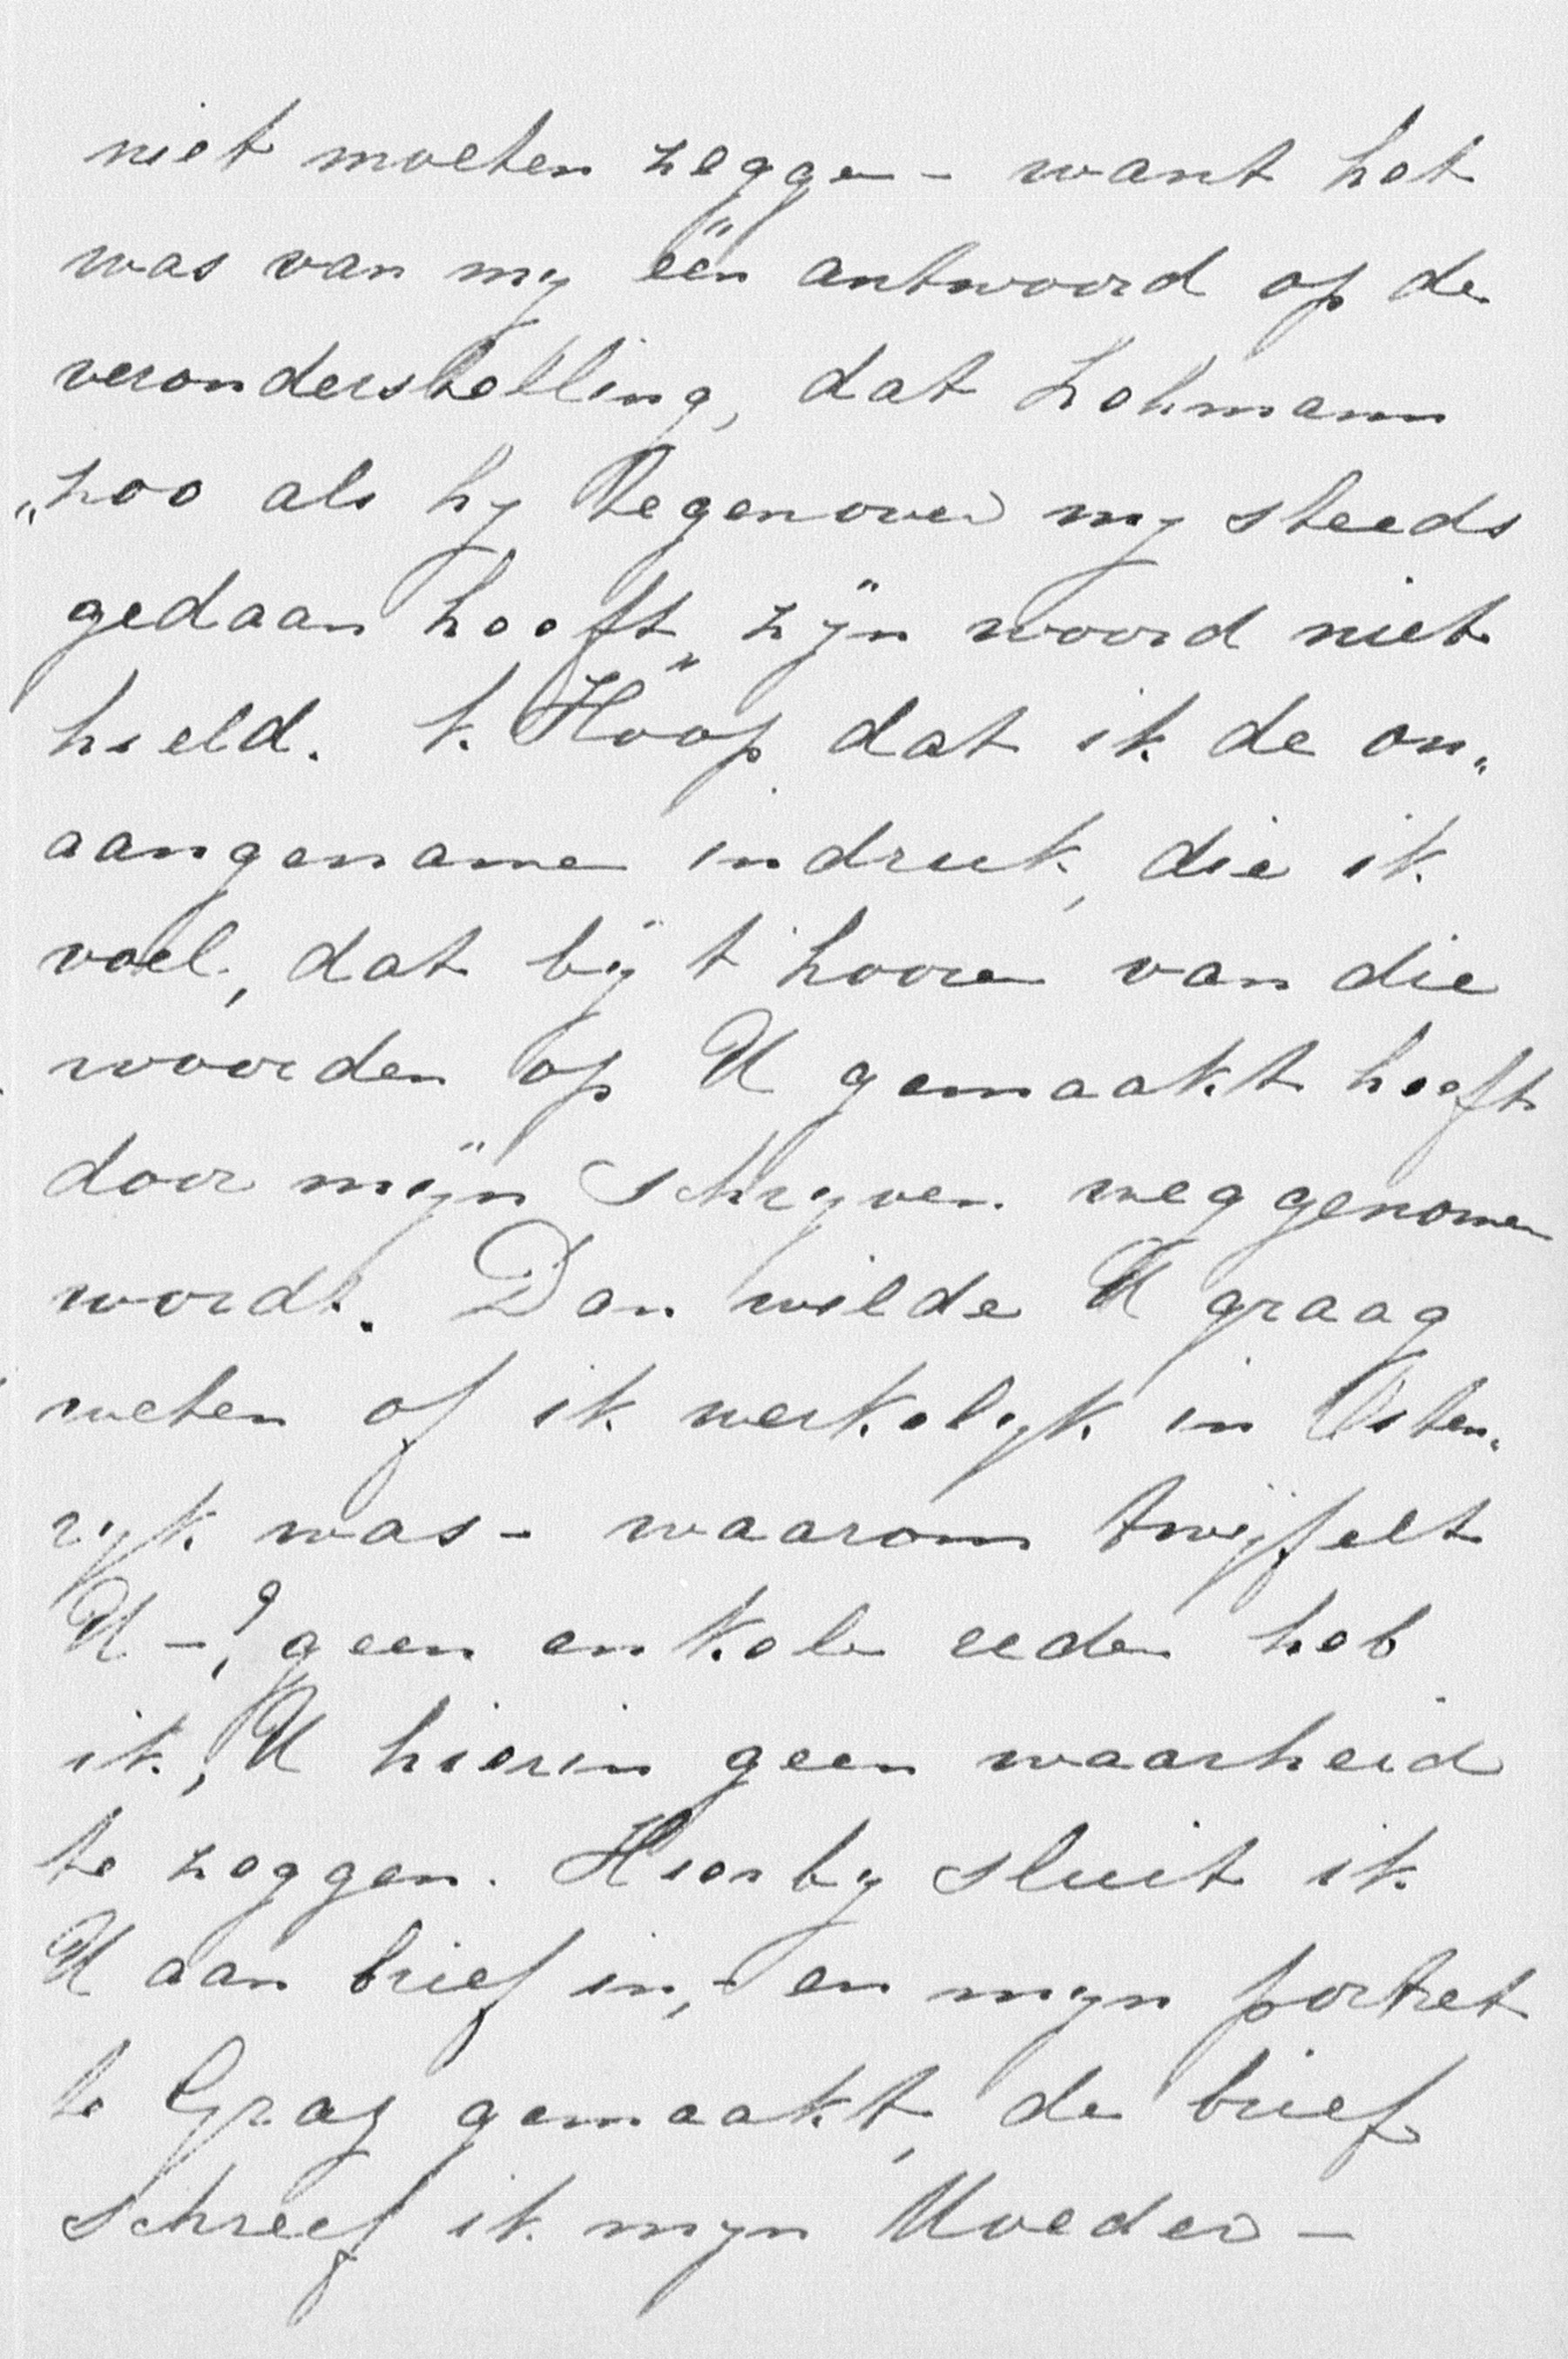 niet moeten zeggen - want het
was van mij één antwoord op de
veronderstelling, dat Lohmann
„zoo als hij tegenover mij steeds
gedaan heeft" zijn woord niet
hield. k. Hoop dat ik de on„
aangename indruk, die ik
voel, dat bij t hooren van die
woorden op U gemaakt heeft
door mijn schrijven weggenomen
wordt. Dan wilde U graag
weten of ik werkelijk in Osten„
rijk was - waarom twijfelt
U - ? geen enkele reden heb
ik, U hierin geen waarheid
te zeggen. Hierbij sluit ik
U aan brief in, - en mijn portret
te Graz gemaakt, de brief
schreef ik mijn Moeder -